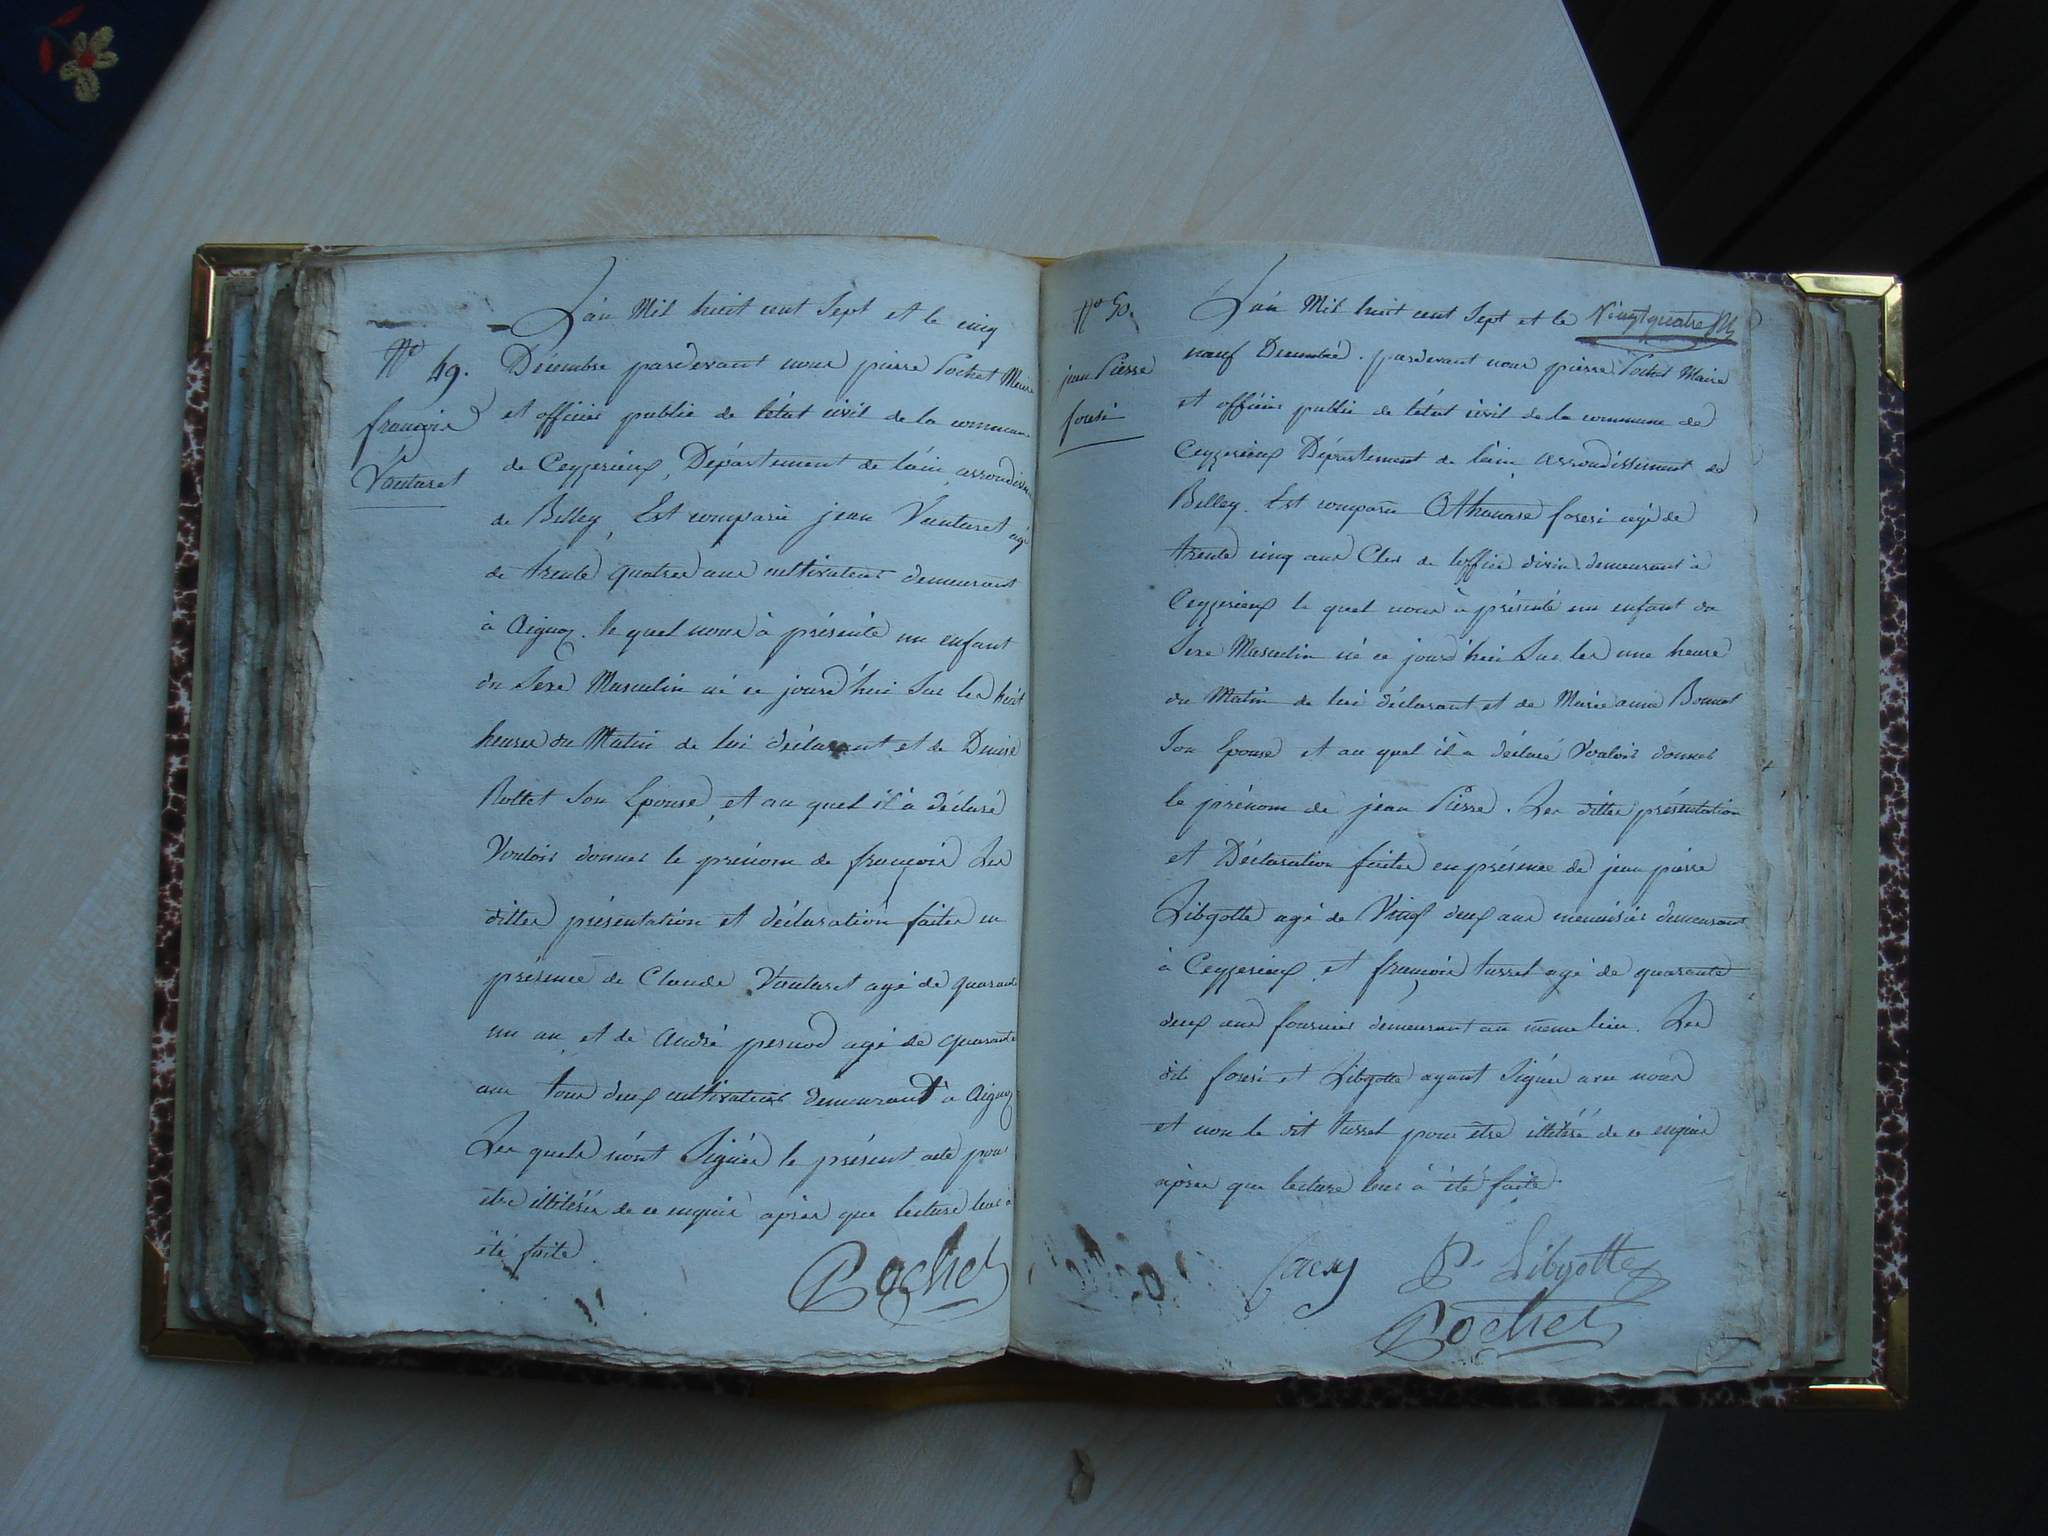 L'an Mil huit cent Sept et le cinq
N° 49.
Décembre pardevant nous pierre Pochet Maire
françois
et officier public de l'état civil de la commune
Vauturet
de Ceyzerieux, Département de l'ain, arrondissem
de Belley, Est comparu jean Vauturet agé
de trente quatre ans cultivateur demeurant
à Aignoz. le quel nous à présenté un enfant
du Sexe Masculin né ce jourd'hui Sur les huit
heures du Matin de lui déclarant et de Denise
Rottet Son Epouse, et au quel il à déclaré
Vouloir donner le prénom de françois Les
dittes présentation et déclaration faites en
présence de Claude Vauturet agé de quarante
un an, et de André pernod agé de quarante
ans tous deux cultivateurs demeurant à Aignoz
Les quels n'ont Signés le présent acte pour
être illitérés de ce enquis après que lecture leur à
été faite.
Pochet
N° 50.
L'an Mil huit cent Sept et le Vingtquatre
jean Pierre
neuf Decembre. pardevant nous pierre Pochet Maire
et officier public de l'état civil de la commune de
Ceyzerieux Département de l'ain, arrondissement de
Belley. Est comparu Athanase agé de
trente cinq ans Clerc de l'office divin demeurant à
Ceyzerieux le quel nous à présenté un enfant du
Sexe Masculin né ce jourd'hui Sur les une heure
du Matin de lui déclarant et de Marie anne Bonnet
Son Epouse et au quel il à déclaré Vouloir donner
le prénom de jean Pierre. Les dittes présentation
et Déclaration faites en présence de jean pierre
Libgotte agé de Vingt deux ans menuisier demeurant
à Ceyzerieux, et françois turrel agé de quarante
deux ans fournier demeurant au même lieu. Les
dits et Libgotte ayant Signés avec nous
et non le dit turrel pour être illitéré de ce enquis
après que lecture leur à été faite.
P. Libgotte
Pochet